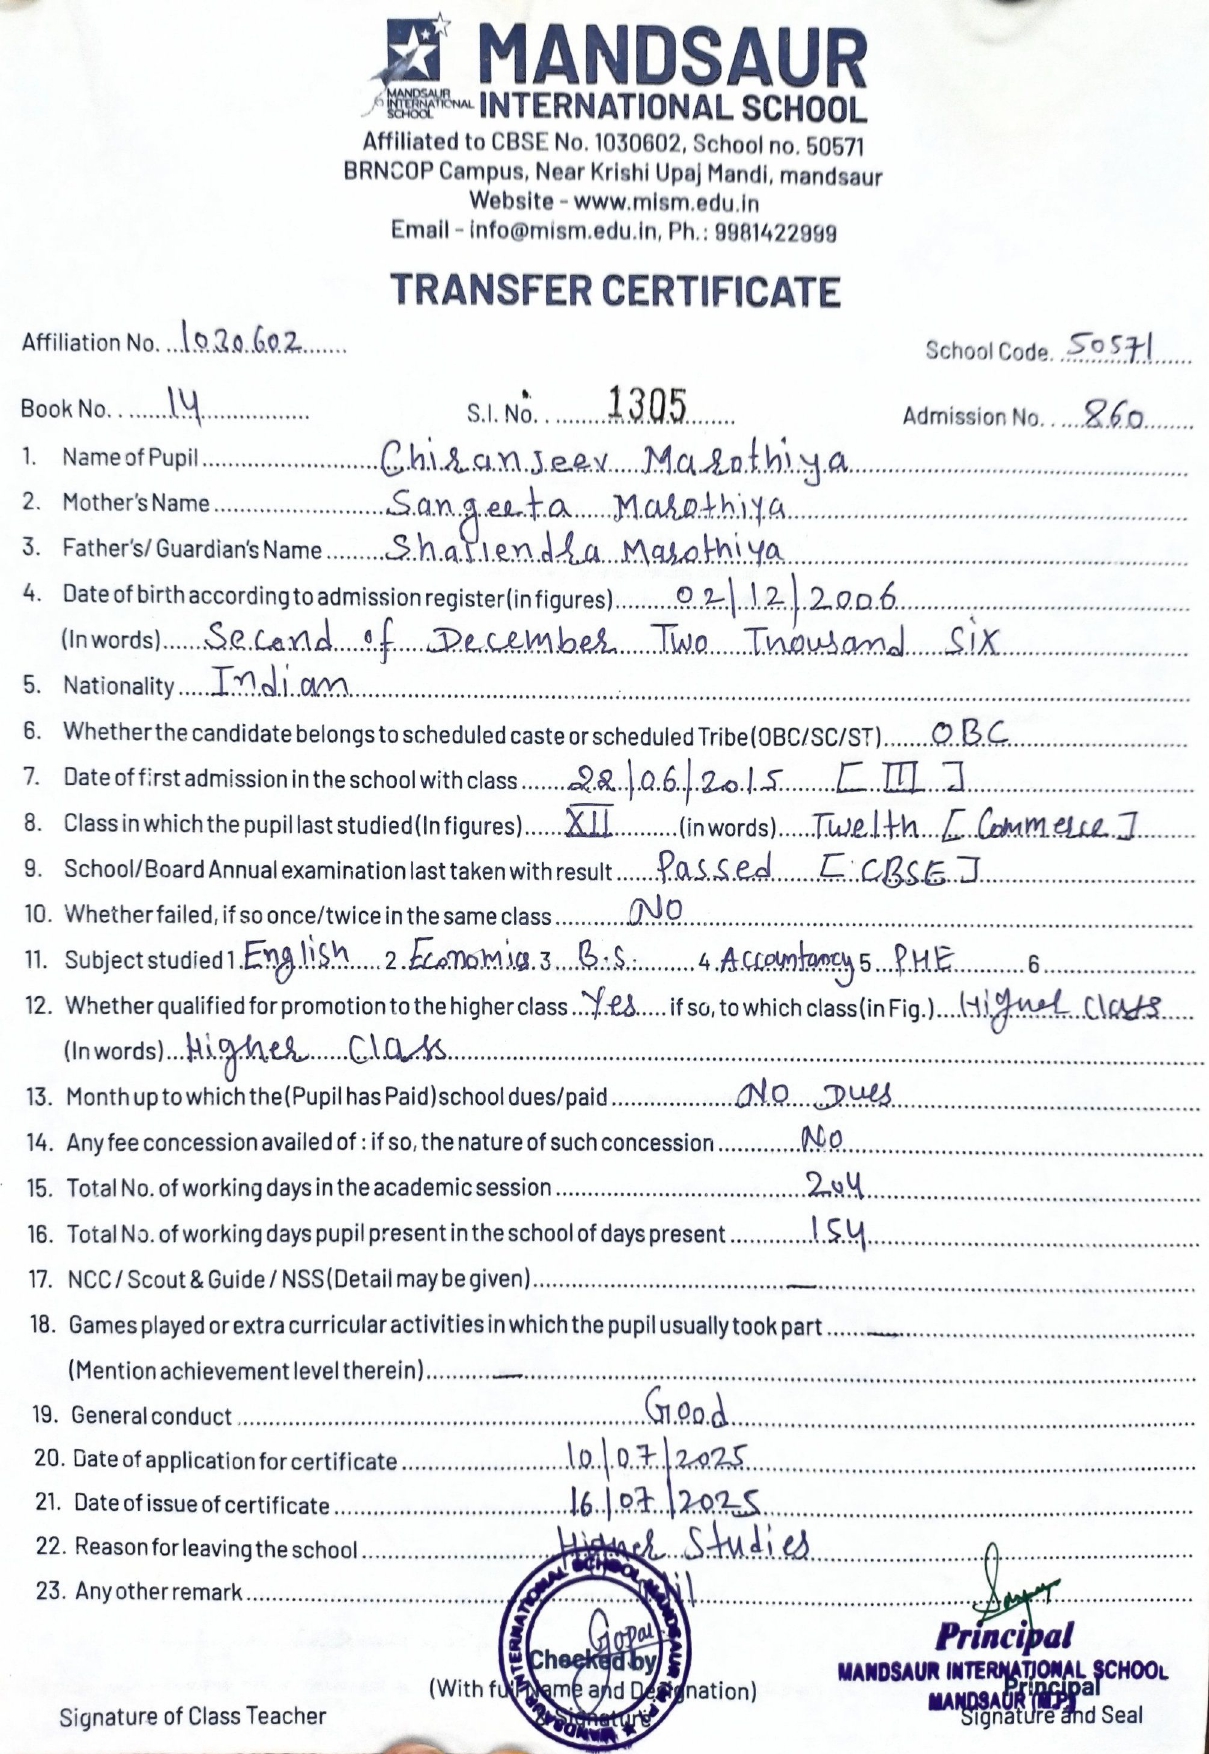 MANDSAUR
INTERNATIONAL SCHOOL
MANDSAUR
INTERNATIONAL
SCHOOL
Affiliated to CBSE No. 1030602, School no. 50571
BRNCOP Campus, Near Krishi Upaj Mandi, mandsaur
Website - www.mism.edu.in
Email - info@mism.edu.in, Ph.: 9981422999
TRANSFER CERTIFICATE
Affiliation No. 1030602 School Code. 50571
Book No. 14 S.I. No. 1305 Admission No. 860
1. Name of Pupil Chiranjeev Marothiya
2. Mother's Name Sangeeta Marothiya
3. Father's/ Guardian's Name Shailendra Marothiya
4. Date of birth according to admission register (in figures) 02/12/2006
(In words) Second of December Two Thousand Six
5. Nationality Indian
6. Whether the candidate belongs to scheduled caste or scheduled Tribe (OBC/SC/ST) OBC
7. Date of first admission in the school with class 22/06/2015 [III]
8. Class in which the pupil last studied (In figures) XII (in words) Twelth [Commerce]
9. School/Board Annual examination last taken with result Passed [CBSE]
10. Whether failed, if so once/twice in the same class NO
11. Subject studied 1. English 2. Economics 3 B.S. 4. Accountancy 5 PHE 6
12. Whether qualified for promotion to the higher class Yes if so, to which class (in Fig.) Higher Class
(In words) Higher Class
13. Month up to which the (Pupil has Paid) school dues/paid NO Dues
14. Any fee concession availed of : if so, the nature of such concession No
15. Total No. of working days in the academic session 204
16. Total No. of working days pupil present in the school of days present 154
17. NCC / Scout & Guide / NSS (Detail may be given) —
18. Games played or extra curricular activities in which the pupil usually took part —
(Mention achievement level therein) —
19. General conduct Good
20. Date of application for certificate 10/07/2025
21. Date of issue of certificate 16/07/2025
22. Reason for leaving the school Higher Studies
23. Any other remark Nil
Gopal
Checked by
(With full Name and Designation)
Signature
MANDSAUR INTERNATIONAL SCHOOL MANDSAUR
Principal
MANDSAUR INTERNATIONAL SCHOOL
MANDSAUR (M.P.)
Principal
Signature of Class Teacher Signature and Seal